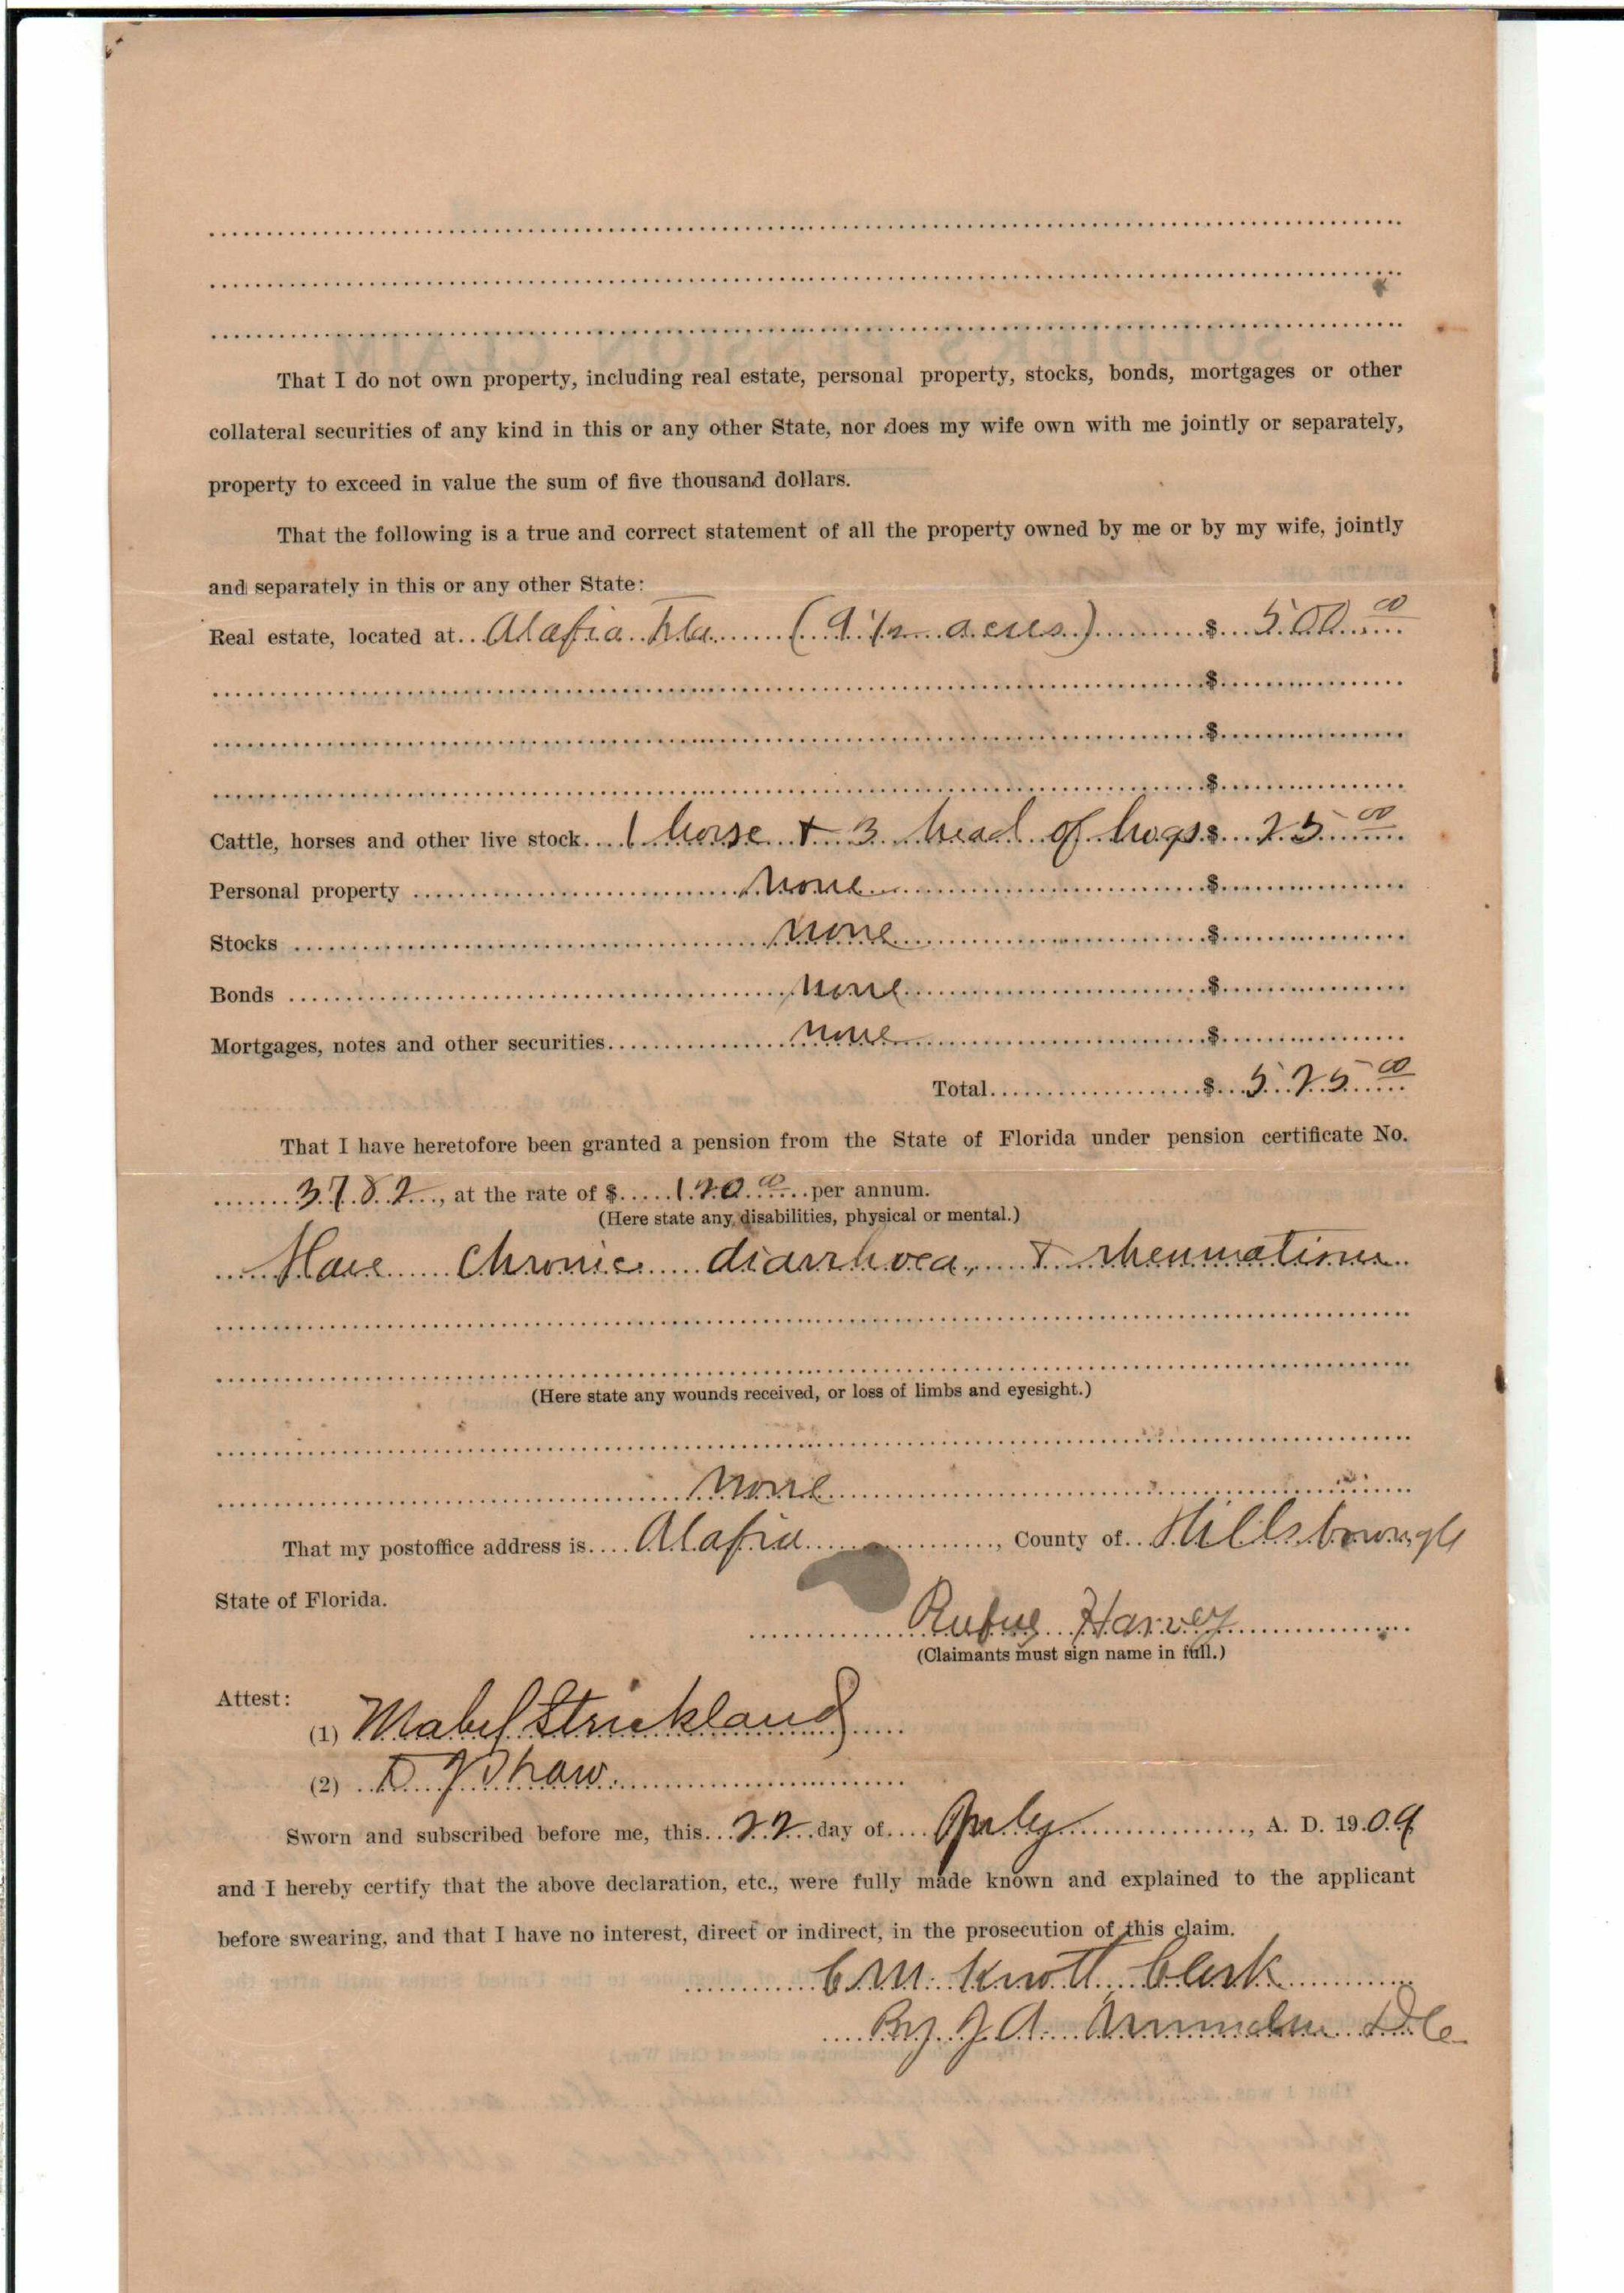 That I do not own property, including real estate, personal property, stocks, bonds, mortgages or other
collateral securities of any kind in this or any other State, nor does my wife own with me jointly or separately,
property to exceed in value the sum of five thousand dollars.
That the following is a true and correct statement of all the property owned by me or by my wife, jointly
and separately in this or any other State:
Real estate, located at Alafia Fla (9 1/2 acres) $ 500 00
$
$
$
Cattle, horses and other live stock 1 horse + 3 head of hogs $ 25 00
Personal property none $
Stocks none $
Bonds none $
Mortgages, notes and other securities none $
Total $ 525 00
That I have heretofore been granted a pension from the State of Florida under pension certificate No.
3782, at the rate of $ 120 00 per annum.
(Here state any disabilities, physical or mental.)
Have Chronic diarrhoea, + rheumatism
(Here state any wounds received, or loss of limbs and eyesight.)
none
That my postoffice address is Alafia, County of Hillsborough
State of Florida.
Rufus Harvey
(Claimants must sign name in full.)
Attest:
(1) Mabel Strickland
(2) Shaw
Sworn and subscribed before me, this 22 day of, A. D. 1909
and I hereby certify that the above declaration, etc., were fully made known and explained to the applicant
before swearing, and that I have no interest, direct or indirect, in the prosecution of this claim.
C M. Knott, Clerk
By J A. D.C.